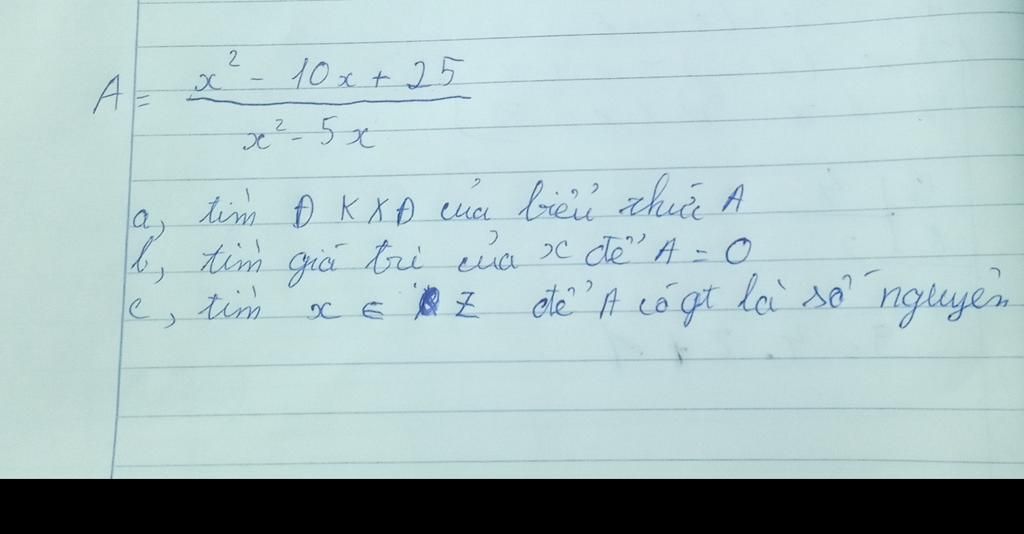 A = \frac{x^2 - 10x + 25}{x^2 - 5x}
a, tìm ĐKXĐ của biểu thức A
b, tìm giá trị của x để A = 0
c, tìm x ∈ Z để A có gt là số nguyên